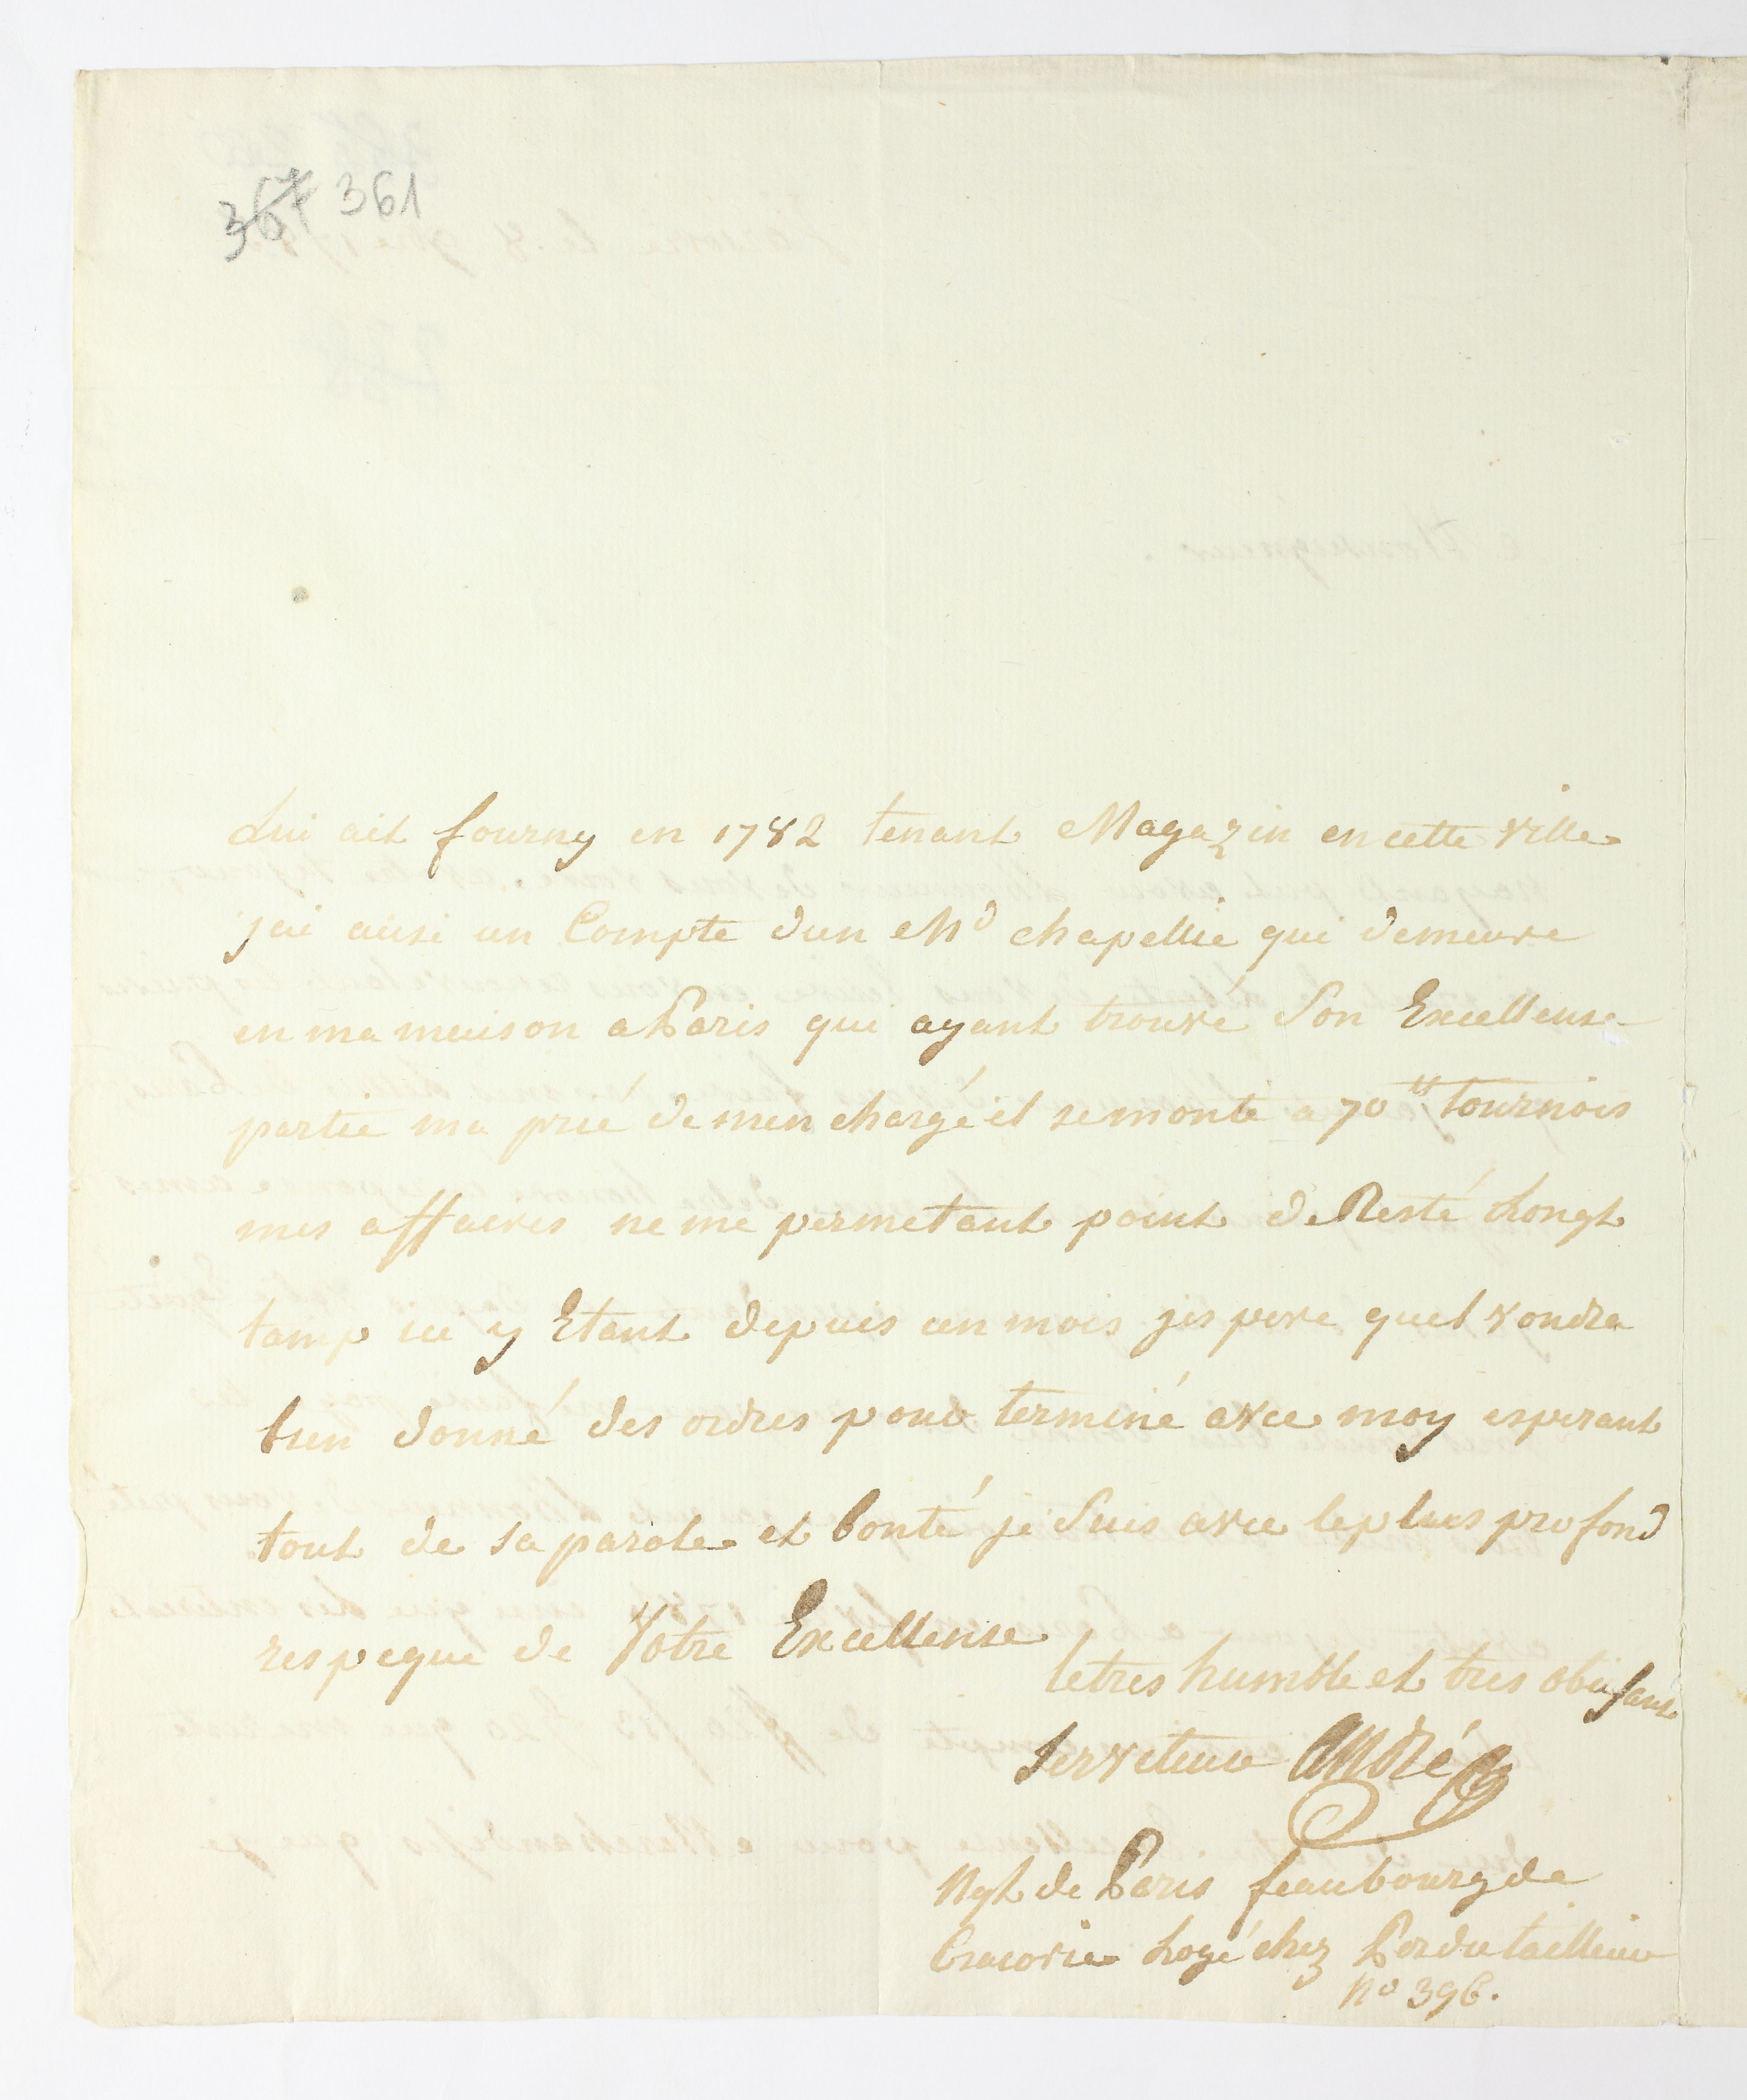 367 361
Lui ait fourny en 1782 tenant Magazin en cette ville
j'ai ausi un Compte dun Md chapellie qui demeure
en ma maison a Paris qui ayant trouvé Son Excellense
partie ma prié de men chargé il se monte a 70 tt tournois
mes affaires ne me permetant point de Resté Longt
tamp ici y Etant depuis un mois jespere quel voudra
bien donné des ordres pour terminé avec moy esperant
tout de sa parole et bonté je Suis avec le plus profond
respeque de Votre Excellense
le tres humble et tres obeisant
Serviteur André
Ngt de Paris feaubourg de
Cracovie Logé chez Perdu tailleur
No 396.